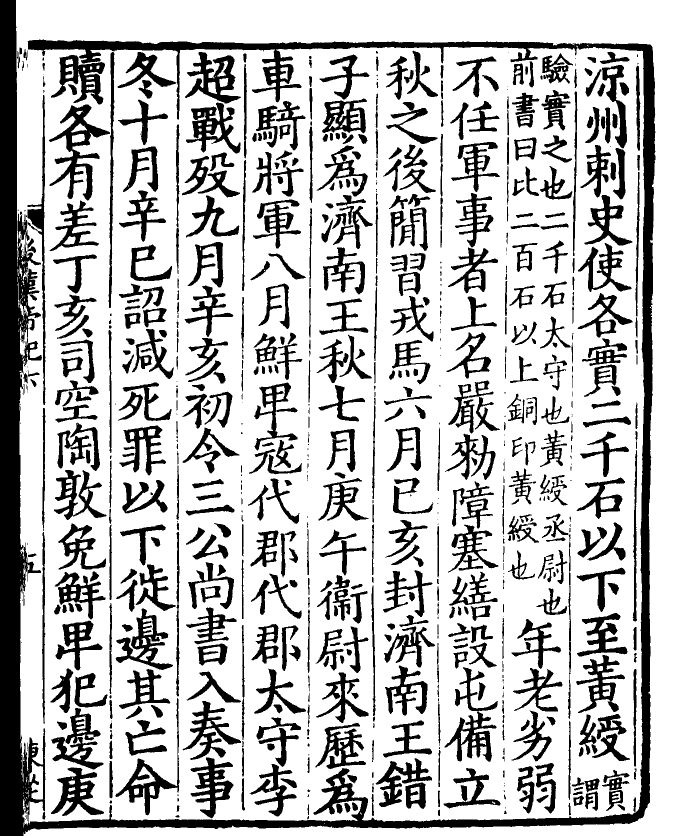 涼州刺史使各實二千石以下至黃綬實謂
驗實之也二千石太守也黃綬丞尉也
前書曰比二百石以上銅印黃綬也
年老劣弱
不任軍事者上名嚴勑障塞繕設屯備立
秋之後簡習戎馬六月已亥封濟南王錯
子顯爲濟南王秋七月庚午衛尉來歷爲
車騎將軍八月鮮卑寇代郡代郡太守李
超戰歿九月辛亥初令三公尚書入奏事
冬十月辛巳詔減死罪以下徙邊其亡命
贖各有差丁亥司空陶敦免鮮卑犯邊庚
五